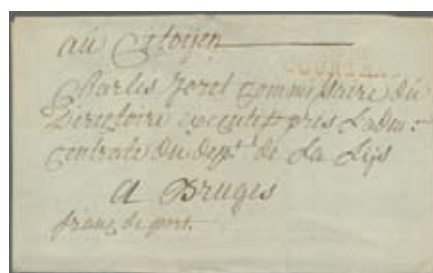 au Citoyen
Charles Joret Commissaire du
Directoire executif près L'adm.on
Centrale du dept. de La Lijs
A Bruges
franc de port.